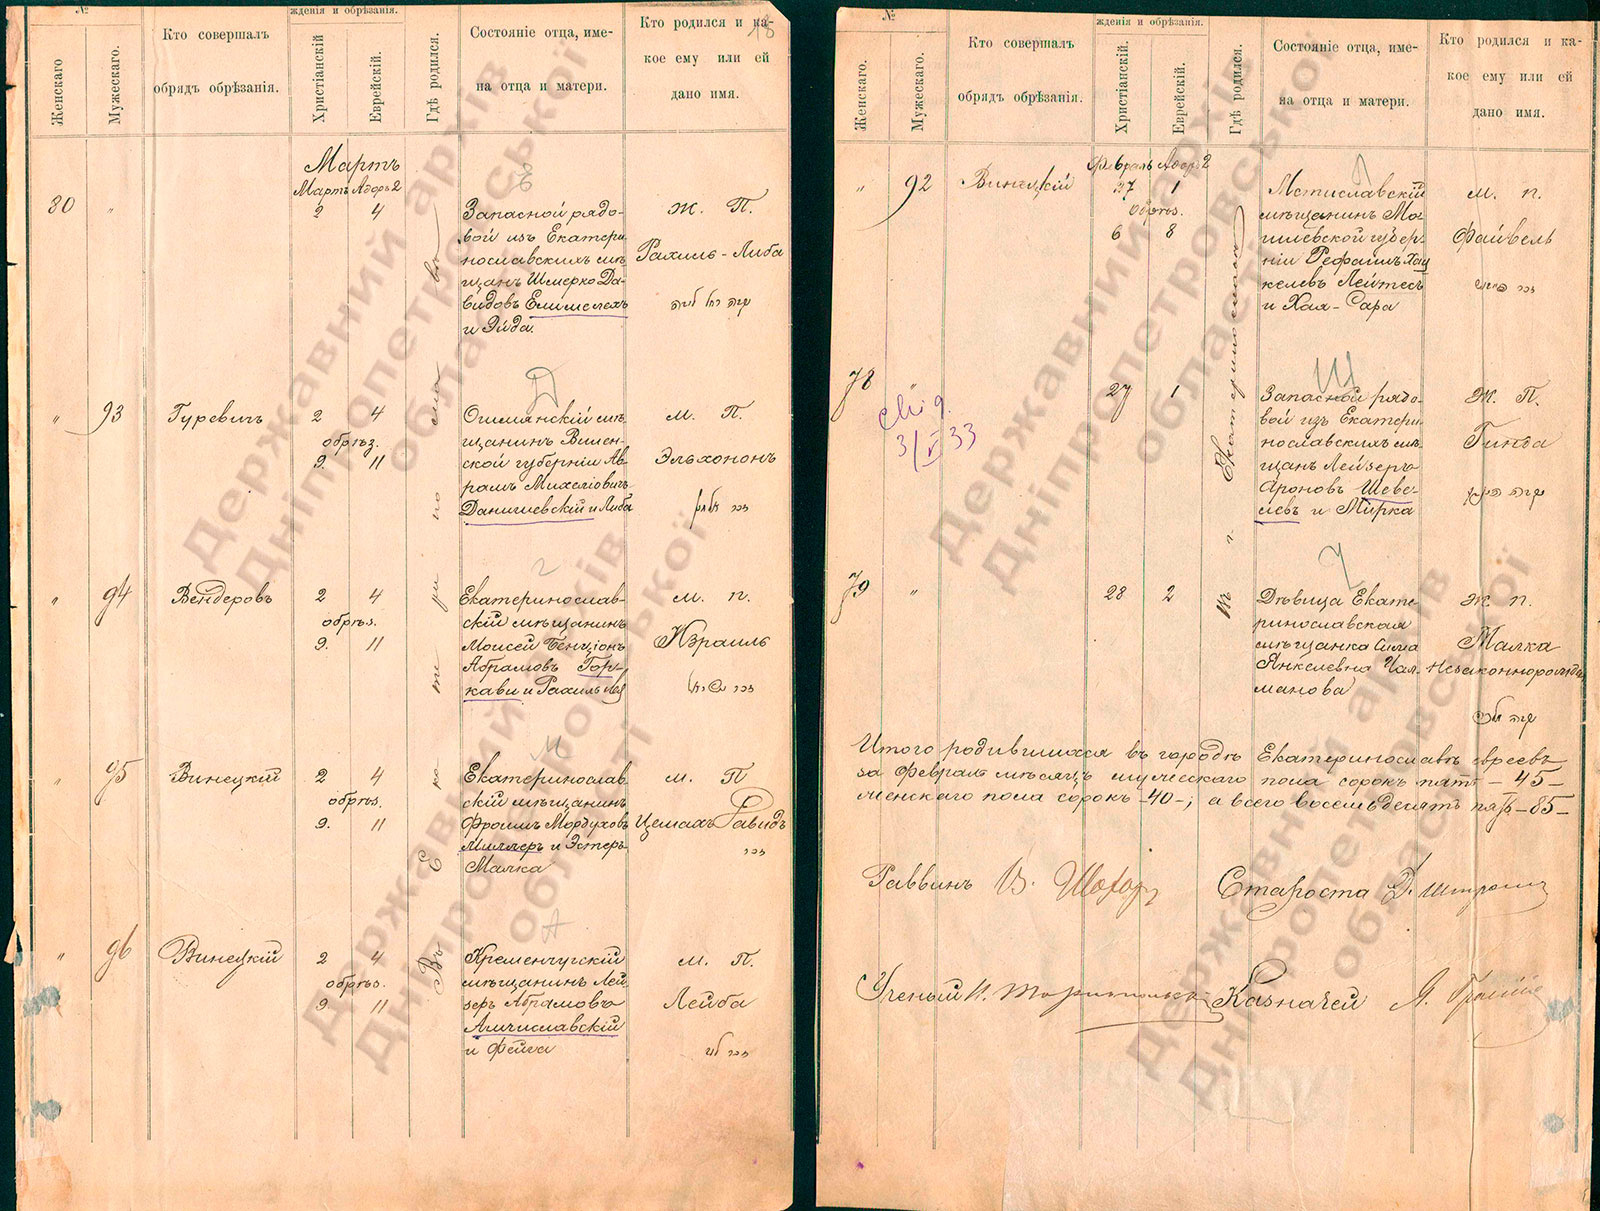 №
Женскаго
Мужескаго.
Кто совершалъ
обрядъ обрѣзанія.
жденія и обрѣзанія.
Христіанскій
Еврейскій.
Гдѣ родился.
Состояніе отца, име-
на отца и матери.
Кто родился и ка-
кое ему или ей
дано имя.
18
Мартъ
Мартъ Адоръ 2
80
"
2
4
Запасной рядо-
вой изъ Екатери-
нославскихъ мѣ-
щанъ Шмерко Да-
видовъ Елишелехъ
и Эйда.
Ж. П.
Рахиль-Либа
"
93
Гуревичъ
2
4
обрѣз.
9.
11
Ошмянскій мѣ-
щанинъ Вилен-
ской губерніи Ав-
рамъ Михелiовичъ
Данишевскій и Либа
м. П.
Эльхононъ
"
94
Вендеровъ
2
4
обрѣз.
9.
11
Екатеринослав-
скій мѣщанинъ
Моисей Бенціонъ
Абрамовъ Гор-
кави и Рахиль Лея
м. п.
Израиль
"
95
Винецкий
2
4
обрѣз.
9.
11
Екатеринослав
скій мѣщанинъ
Фроимъ Мордуховъ
Миллеръ и Эстеръ-
Малка
м. П
Цемахъ Давидъ
"
96
Винецкий
2
4
обрѣз.
9.
11
Кременчугскій
мѣщанинъ Лей-
зеръ Абрамовъ
Амчиславскій
и Фейга
м. П.
Лейба
Въ Екатеринославѣ
№
Женскаго
Мужескаго.
Кто совершалъ
обрядъ обрѣзанія.
жденія и обрѣзанія.
Христіанскій
Еврейскій.
Гдѣ родился.
Состояніе отца, име-
на отца и матери.
Кто родился и ка-
кое ему или ей
дано имя.
Февраль Адоръ 2
"
92
Винецкій
27
1
обрѣз.
6
8
Мстиславскій
мѣщанинъ Мо-
гилевской губер-
ніи Рефаилъ Хац
келевъ Лейтесъ
и Хая-Сара
м. п.
Файвель
78
"
3/VI 33
27
1
Запасной рядо-
вой изъ Екатери-
нославскихъ мѣ-
щанъ Лейзеръ
Ароновъ Шеве-
левъ и Мирка
Ж. П.
Гинда
79
"
28
2
Дѣвица Екате-
ринославская
мѣщанка Сима
Янкелевна Чал-
манова
Ж п.
Малка
Незаконнорожд.
Въ г. Екатеринославѣ
Итого родившихся въ городѣ Екатеринославѣ евреевъ
за Февраль мѣсяцъ мужескаго пола сорокъ пять -45-
женскаго пола сорокъ -40-; а всего восемьдесятъ пять -85-
Раввинъ В. Шахоръ Староста Д.
Ученый Казначей
Державний архів
Дніпропетровської
області